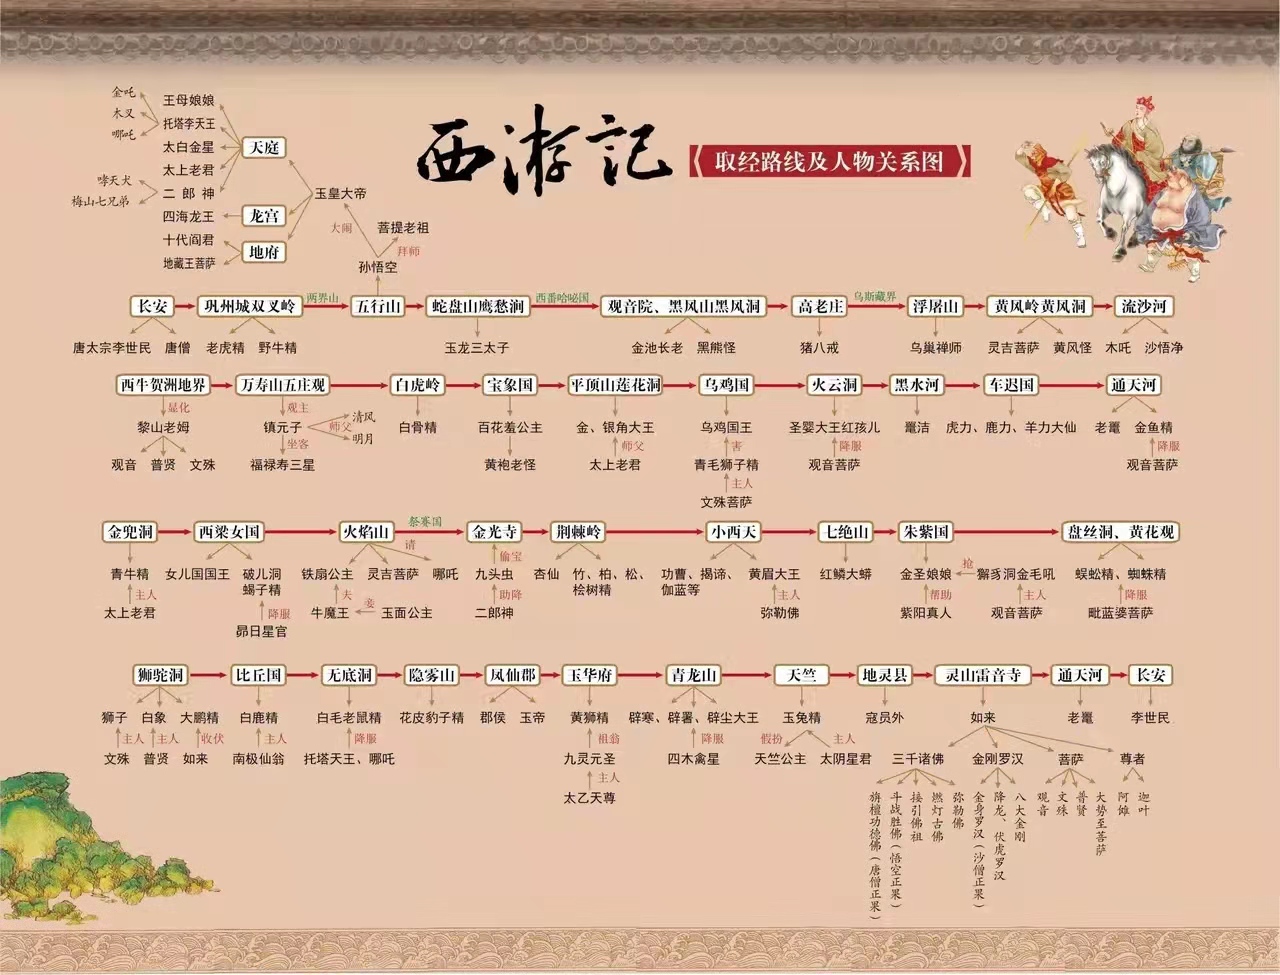 西游记
取经路线及人物关系图
金吒
木叉
哪吒
王母娘娘
托塔李天王
太白金星
太上老君
二郎神
哮天犬
梅山七兄弟
天庭
四海龙王
龙宫
十代阎君
地藏王菩萨
地府
玉皇大帝
大闹
菩提老祖
拜师
孙悟空
长安 巩州城双叉岭 两界山 五行山 蛇盘山鹰愁涧 西番哈咇国 观音院、黑风山黑风洞 高老庄 乌斯藏界 浮屠山 黄风岭黄风洞 流沙河
唐太宗李世民 唐僧 老虎精 野牛精 玉龙三太子 金池长老 黑熊怪 猪八戒 乌巢禅师 灵吉菩萨 黄风怪 木吒 沙悟净
西牛贺洲地界 万寿山五庄观 白虎岭 宝象国 平顶山莲花洞 乌鸡国 火云洞 黑水河 车迟国 通天河
显化 观主 清风
黎山老姆 镇元子 师父 白骨精 百花羞公主 金、银角大王 乌鸡国王 圣婴大王红孩儿 鼍洁 虎力、鹿力、羊力大仙 老鼋 金鱼精
坐客 明月 师父 害 降服 降服
观音 普贤 文殊 福禄寿三星 黄袍老怪 太上老君 青毛狮子精 观音菩萨 观音菩萨
主人
文殊菩萨
金兜洞 西梁女国 火焰山 祭赛国 金光寺 荆棘岭 小西天 七绝山 朱紫国 盘丝洞、黄花观
请 偷宝 抢
青牛精 女儿国国王 破儿洞 铁扇公主 灵吉菩萨 哪吒 九头虫 杏仙 竹、柏、松、 功曹、揭谛、 黄眉大王 红鳞大蟒 金圣娘娘 獬豸洞金毛吼 蜈蚣精、蜘蛛精
蝎子精 桧树精 伽蓝等
主人 降服 夫 妾 助降 主人 帮助 主人 降服
太上老君 牛魔王 玉面公主 二郎神 弥勒佛 紫阳真人 观音菩萨 毗蓝婆菩萨
昴日星官
狮驼洞 比丘国 无底洞 隐雾山 凤仙郡 玉华府 青龙山 天竺 地灵县 灵山雷音寺 通天河 长安
狮子 白象 大鹏精 白鹿精 白毛老鼠精 花皮豹子精 郡侯 玉帝 黄狮精 辟寒、辟署、辟尘大王 玉兔精 寇员外 如来 老鼋 李世民
主人 主人 收伏 主人 降服 祖翁 降服 假扮 主人
文殊 普贤 如来 南极仙翁 托塔天王、哪吒 九灵元圣 四木禽星 天竺公主 太阴星君 三千诸佛 金刚罗汉 菩萨 尊者
主人
太乙天尊
旃檀功德佛(唐僧正果)
斗战胜佛(悟空正果)
接引佛祖
燃灯古佛
弥勒佛
金身罗汉(沙僧正果)
降龙、伏虎罗汉
八大金刚
观音
文殊
普贤
大势至菩萨
阿傩
迦叶